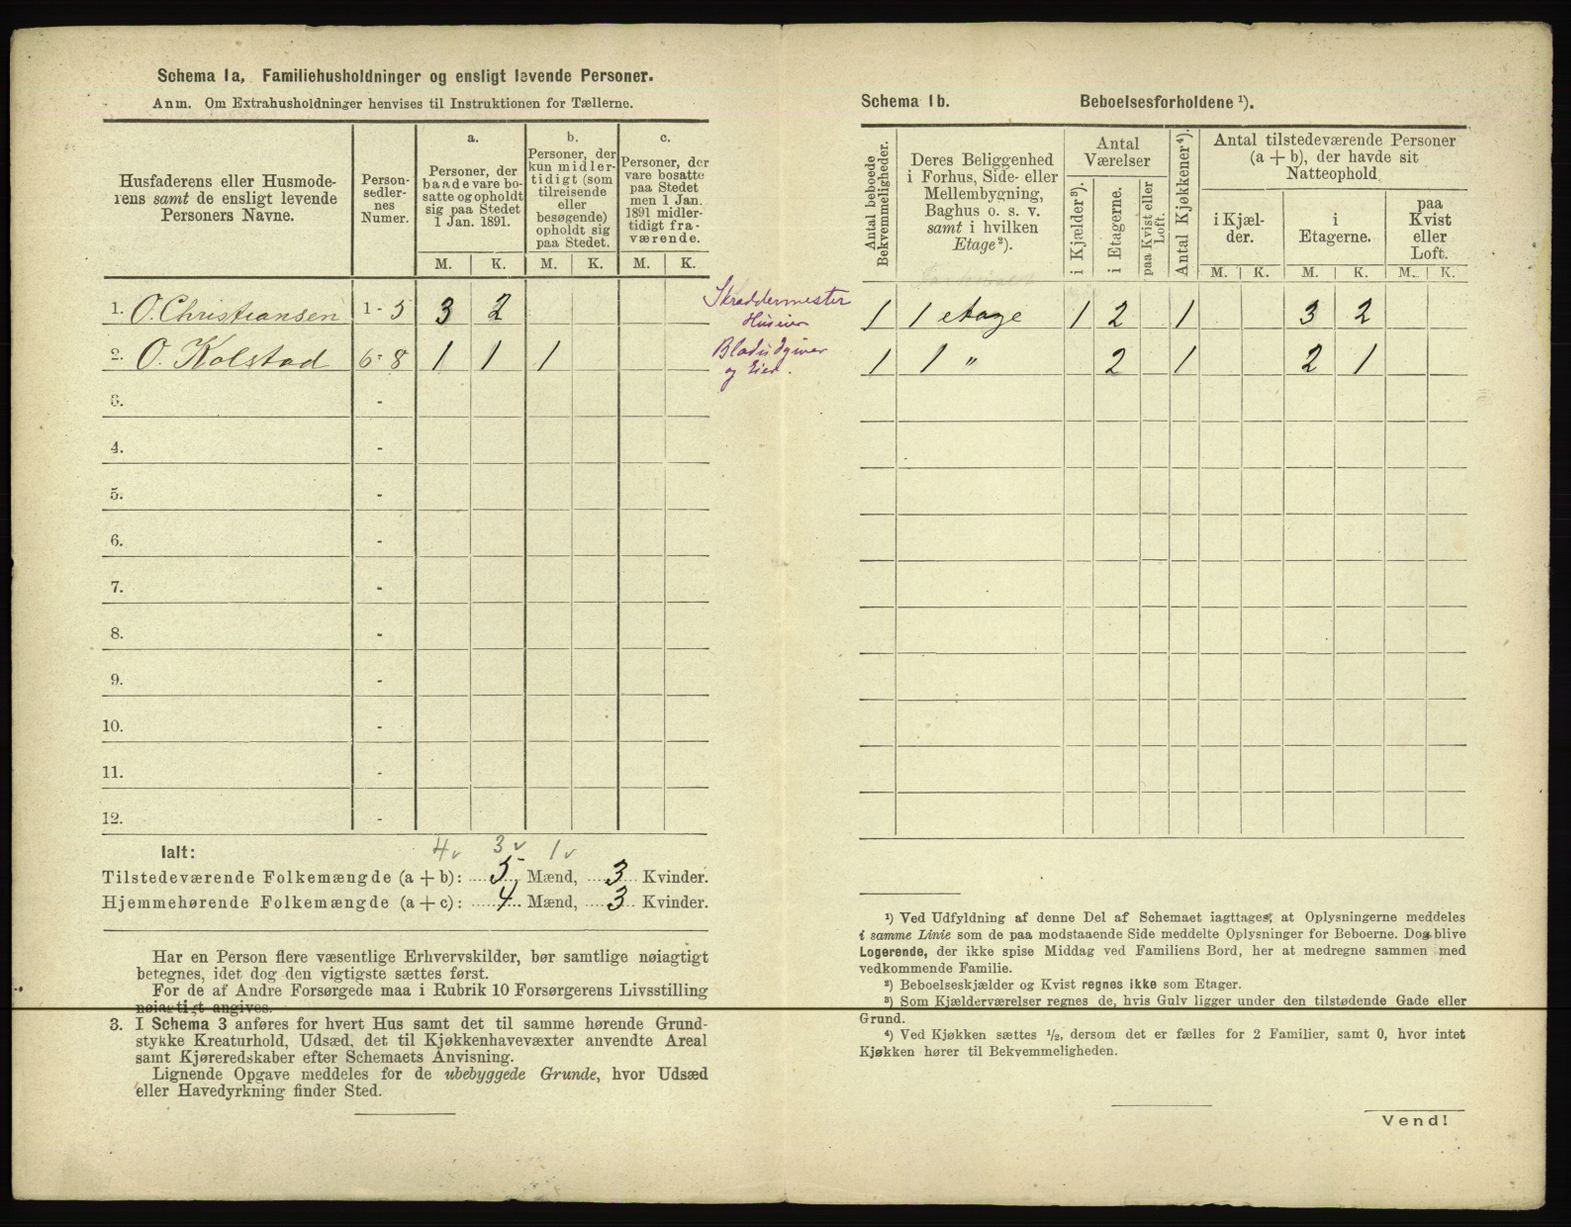 Schema Ia, Familiehusholdninger og ensligt levende Personer.
Anm. Om Extrahusholdninger henvises til Instruktionen for Tællerne.
Husfaderens eller Husmode-
rens samt de ensligt levende
Personers Navne.
Person-
sedler-
nes
Numer.
a.
Personer, der
baade vare bo-
satte og opholdt
sig paa Stedet
1 Jan. 1891.
M. K.
b.
Personer, der
kun midler-
tidigt (som
tilreisende
eller
besøgende)
opholdt sig
paa Stedet.
M. K.
c.
Personer, der
vare bosatte
paa Stedet
men 1 Jan.
1891 midler-
tidigt fra-
værende.
M. K.
1. O. Christiansen 1 - 5 3 2
Skræddermester
Huseier
2. O. Kolstad 6 - 8 1 1 1
Bladudgiver
og Eier.
3. -
4. -
5. -
6. -
7. -
8. -
9. -
10. -
11. -
12. -
4 v 3 v 1 v
Ialt:
Tilstedeværende Folkemængde (a + b): 5 Mænd, 3 Kvinder.
Hjemmehørende Folkemængde (a + c): 4 Mænd, 3 Kvinder.
Har en Person flere væsentlige Erhvervskilder, bør samtlige nøiagtigt
betegnes, idet dog den vigtigste sættes først.
For de af Andre Forsørgede maa i Rubrik 10 Forsørgerens Livsstilling
nøiagtigt angives.
3. I Schema 3 anføres for hvert Hus samt det til samme hørende Grund-
stykke Kreaturhold, Udsæd, det til Kjøkkenhavevæxter anvendte Areal
samt Kjøreredskaber efter Schemaets Anvisning.
Lignende Opgave meddeles for de ubebyggede Grunde, hvor Udsæd
eller Havedyrkning finder Sted.
Schema Ib. Beboelsesforholdene ¹).
Antal beboede
Bekvemmeligheder.
Deres Beliggenhed
i Forhus, Side- eller
Mellembygning,
Baghus o. s. v.
samt i hvilken
Etage²).
Antal
Værelser
i Kjælder³).
i Etagerne.
paa Kvist eller
Loft.
Antal Kjøkkener⁴).
Antal tilstedeværende Personer
(a + b), der havde sit
Natteophold
i Kjæl-
der.
M. K.
i
Etagerne.
M. K.
paa
Kvist
eller
Loft.
M. K.
1 1 etage 1 2 1 3 2
1 1 " 2 1 2 1
¹) Ved Udfyldning af denne Del af Schemaet iagttages, at Oplysningerne meddeles
i samme Linie som de paa modstaaende Side meddelte Oplysninger for Beboerne. Dog blive
Logerende, der ikke spise Middag ved Familiens Bord, her at medregne sammen med
vedkommende Familie.
²) Beboelseskjælder og Kvist regnes ikke som Etager.
³) Som Kjælderværelser regnes de, hvis Gulv ligger under den tilstødende Gade eller
Grund.
⁴) Ved Kjøkken sættes ½, dersom det er fælles for 2 Familier, samt 0, hvor intet
Kjøkken hører til Bekvemmeligheden.
Vend!